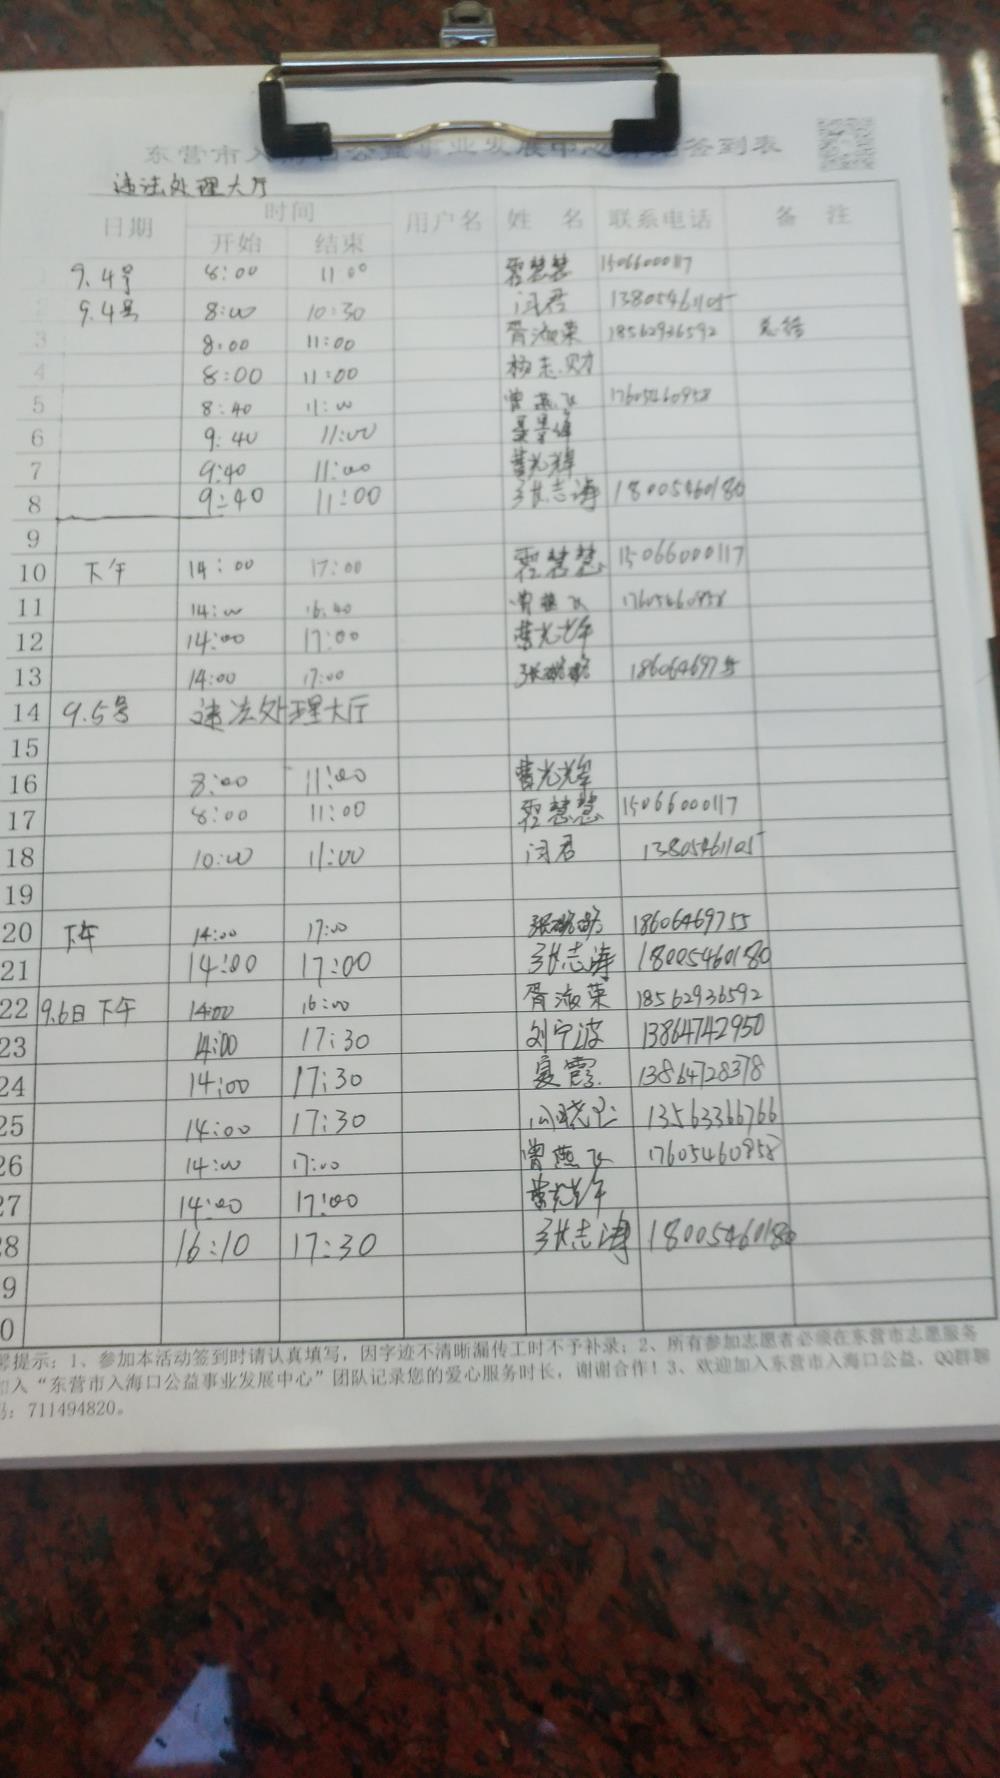 东营市入海口公益事业发展中心 签到表
违法处理大厅
日期 时间 用户名 姓名 联系电话 备注
开始 结束
9.4号 8:00 11:00 霍慧慧 15066000117
9.4号 8:00 10:30 闫君 13805461105
3 8:00 11:00 胥淑荣 18562936592 总结
4 8:00 11:00 杨志财
5 8:40 11:00 曾燕飞 17605460958
6 9:40 11:00
7 9:40 11:00 黄光辉
8 9:40 11:00 张志涛 18005460180
9
10 下午 14:00 17:00 霍慧慧 15066000117
11 14:00 16:40 曾燕飞 17605460958
12 14:00 17:00
13 14:00 17:00 张璐璐
14 9.5号 违法处理大厅
15
16 8:00 11:00 黄光辉
17 8:00 11:00 霍慧慧 15066000117
18 10:00 11:00 闫君 13805461105
19
20 下午 14:00 17:00 张璐璐 18606469755
21 14:00 17:00 张志涛 18005460180
22 9.6日下午 14:00 16:00 胥淑荣 18562936592
23 14:00 17:30 刘宁波 13864742950
24 14:00 17:30 夏霞 13864728378
25 14:00 17:30 13563366766
26 14:00 17:00 曾燕飞 17605460958
27 14:00 17:00
28 16:10 17:30 张志涛 18005460180
9
0
提示：1、参加本活动签到时请认真填写，因字迹不清晰漏传工时不予补录；2、所有参加志愿者必须在东营市志愿服务
加入“东营市入海口公益事业发展中心”团队记录您的爱心服务时长，谢谢合作！3、欢迎加入东营市入海口公益，QQ群聊
码：711494820。